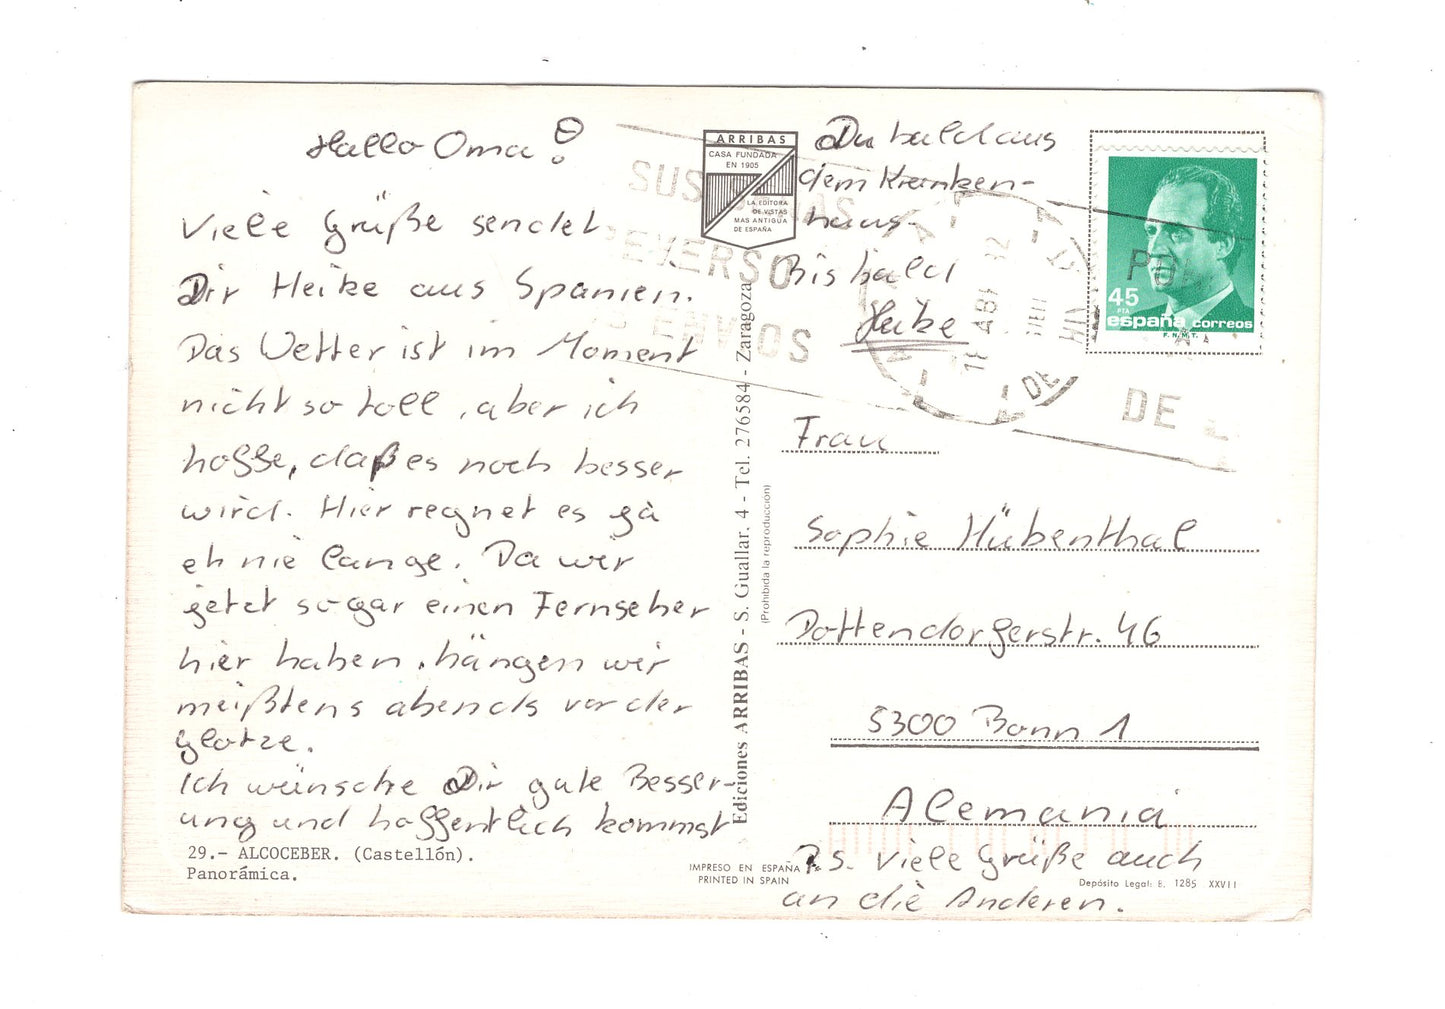 Hallo Oma!
Viele Grüße sendet
Dir Heike aus Spanien.
Das Wetter ist im Moment
nicht so toll, aber ich
hoffe, daß es noch besser
wird. Hier regnet es ja
eh nie lange. Da wir
jetzt sogar einen Fernseher
hier haben, hängen wir
meißtens abends vor der
Glotze.
Ich wünsche Dir gute Besser-
ung und hoffentlich kommst
Du bald aus
dem Kranken-
haus.
Bis bald
Heike
P.S. Viele Grüße auch
an die Anderen.
29.- ALCOCEBER. (Castellón).
Panorámica.
ARRIBAS
CASA FUNDADA
EN 1905
LA EDITORA
DE VISTAS
MAS ANTIGUA
DE ESPAÑA
Ediciones ARRIBAS - S. Guallar. 4 - Tel. 276584 - Zaragoza
(Prohibida la reproducción)
IMPRESO EN ESPAÑA
PRINTED IN SPAIN
45
PTA
españa correos
F.N.M.T.
SUS
REVERSO
ENVIOS
DE
Frau
Sophie Hübenthal
Dottendorferstr. 46
5300 Bonn 1
Alemania
Depósito Legal: B. 1285 XXVII